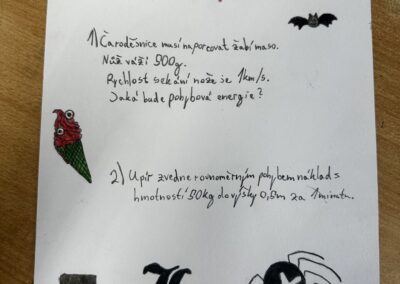 1) Čaroděsnice masí naporcovat žabí maso.
Nůž váží 500g.
Rychlost sekání nože je 1km/s.
Jaká bude pohybová energie?
2) Upír zvedne rovnoměrným pohybem náklad s
hmotností 50kg do výšky 0,5m za 1minutu.